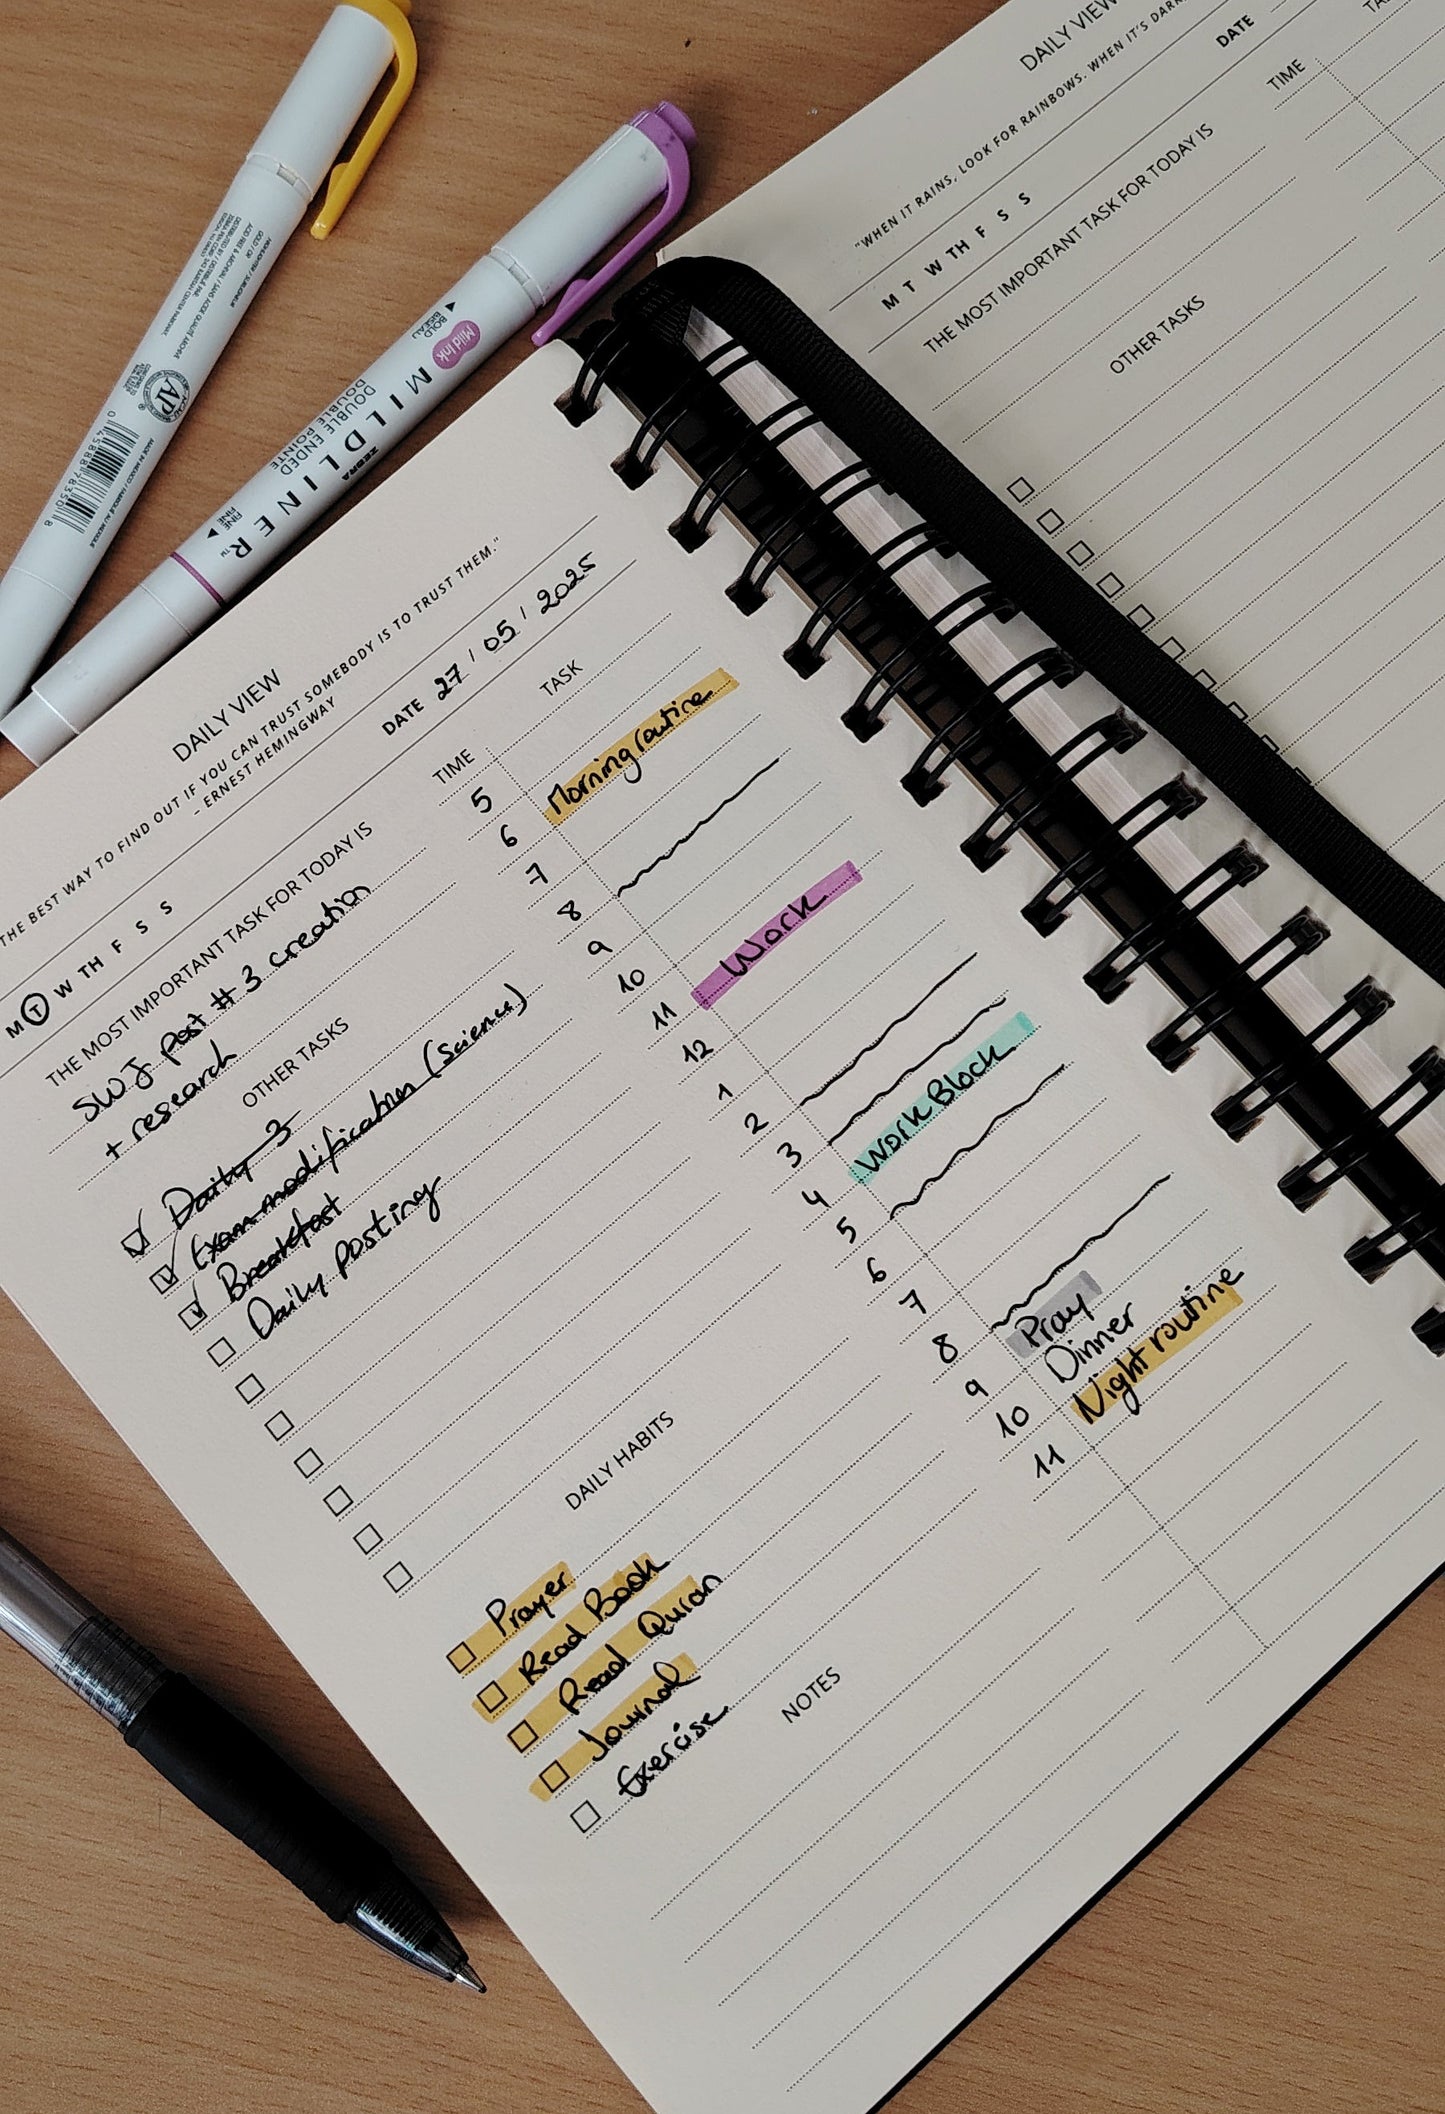 DAILY VIEW
THE BEST WAY TO FIND OUT IF YOU CAN TRUST SOMEBODY IS TO TRUST THEM."
- ERNEST HEMINGWAY
M T W TH F S S
DATE 27 / 05 / 2025
THE MOST IMPORTANT TASK FOR TODAY IS
SWJ post #3 creation
+ research
OTHER TASKS
Daily 3
Exam modification (Science)
Breakfast
Daily posting
DAILY HABITS
Prayer
Read Book
Read Quran
Journal
Exercise
NOTES
TIME TASK
5
6 Morning routine
7
8
9
10
11 Work
12
1
2
3
4 Work Block
5
6
7
8 Pray
9 Dinner
10 Night routine
11
DAILY VIEW
"WHEN IT RAINS, LOOK FOR RAINBOWS. WHEN IT'S DARK
M T W TH F S S
DATE
THE MOST IMPORTANT TASK FOR TODAY IS
OTHER TASKS
TIME
BOLD
BISEAU
Mild Ink
MILDLINER™
DOUBLE ENDED
DOUBLE POINTE
ZEBRA
FINE
FINE
AP